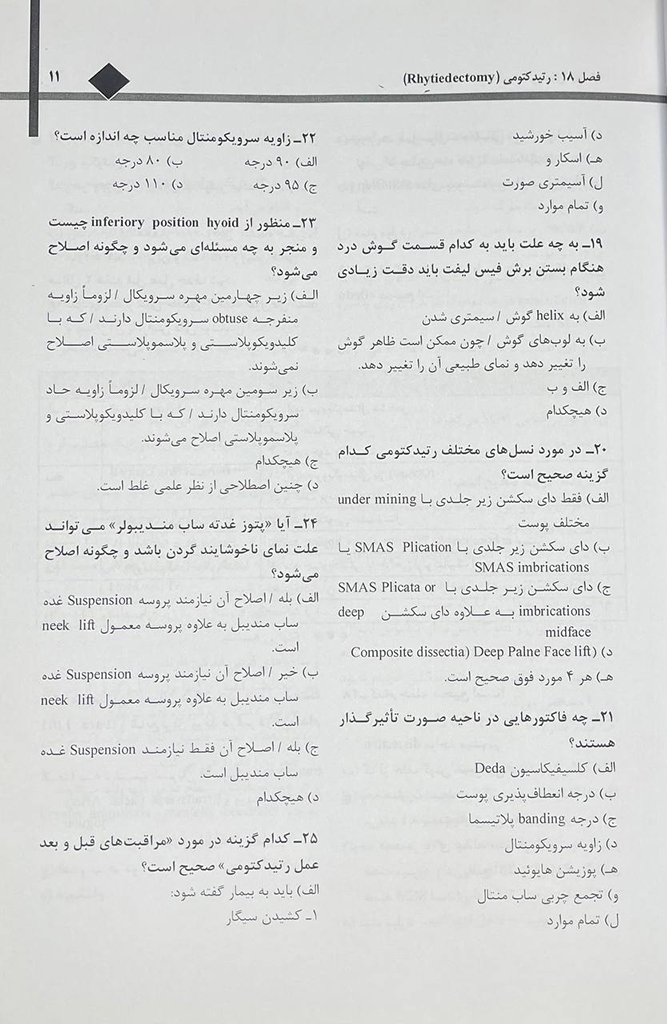 فصل ۱۸ : رتیدکتومی (Rhytiedectomy)
۱۱
د) آسیب خورشید
هـ) اسکار و
ل) آسیمتری صورت
و) تمام موارد
۱۹ـ به چه علت باید به کدام قسمت گوش درد
هنگام بستن برش فیس لیفت باید دقت زیادی
شود؟
الف) به helix گوش / سیمتری شدن
ب) به لوب‌های گوش / چون ممکن است ظاهر گوش
را تغییر دهد و نمای طبیعی آن را تغییر دهد.
ج) الف و ب
د) هیچکدام
۲۰ـ در مورد نسل‌های مختلف رتیدکتومی کدام
گزینه صحیح است؟
الف) فقط دای سکشن زیر جلدی با under mining
مختلف پوست
ب) دای سکشن زیر جلدی با SMAS Plication یا
SMAS imbrications
ج) دای سکشن زیر جلدی با SMAS Plicata or
imbrications به علاوه دای سکشن deep
midface
د) (Composite dissectia) Deep Palne Face lift
هـ) هر ۴ مورد فوق صحیح است.
۲۱ـ چه فاکتورهایی در ناحیه صورت تأثیرگذار
هستند؟
الف) کلسیفیکاسیون Deda
ب) درجه انعطاف‌پذیری پوست
ج) درجه banding پلاتیسما
د) زاویه سرویکومنتال
هـ) پوزیشن هایوئید
و) تجمع چربی ساب منتال
ل) تمام موارد
۲۲ـ زاویه سرویکومنتال مناسب چه اندازه است؟
الف) ۹۰ درجه ب) ۸۰ درجه
ج) ۹۵ درجه د) ۱۱۰ درجه
۲۳ـ منظور از inferiory position hyoid چیست
و منجر به چه مسئله‌ای می‌شود و چگونه اصلاح
می‌شود؟
الف) زیر چهارمین مهره سرویکال / لزوماً زاویه
منفرجه obtuse سرویکومنتال دارند / که با
کلیدویکوپلاستی و پلاسموپلاستی اصلاح
نمی‌شوند.
ب) زیر سومین مهره سرویکال / لزوماً زاویه حاد
سرویکومنتال دارند / که با کلیدویکوپلاستی و
پلاسموپلاستی اصلاح می‌شوند.
ج) هیچکدام
د) چنین اصطلاحی از نظر علمی غلط است.
۲۴ـ آیا «پتوز غدته ساب مندیبولر» می تواند
علت نمای ناخوشایند گردن باشد و چگونه اصلاح
می‌شود؟
الف) بله / اصلاح آن نیازمند پروسه Suspension غده
ساب مندیبل به علاوه پروسه معمول neek lift
است.
ب) خیر / اصلاح آن نیازمند پروسه Suspension غده
ساب مندیبل به علاوه پروسه معمول neek lift
است.
ج) بله / اصلاح آن فقط نیازمند Suspension غده
ساب مندیبل است.
د) هیچکدام
۲۵ـ کدام گزینه در مورد «مراقبت‌های قبل و بعد
عمل رتیدکتومی» صحیح است؟
الف) باید به بیمار گفته شود:
۱ـ کشیدن سیگار